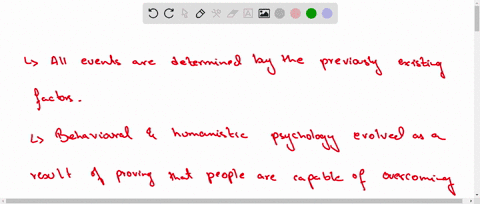 ↳ All events are determined by the previously existing
factors.
↳ Behavioural & humanistic psychology evolved as a
result of proving that people are capable of overcoming